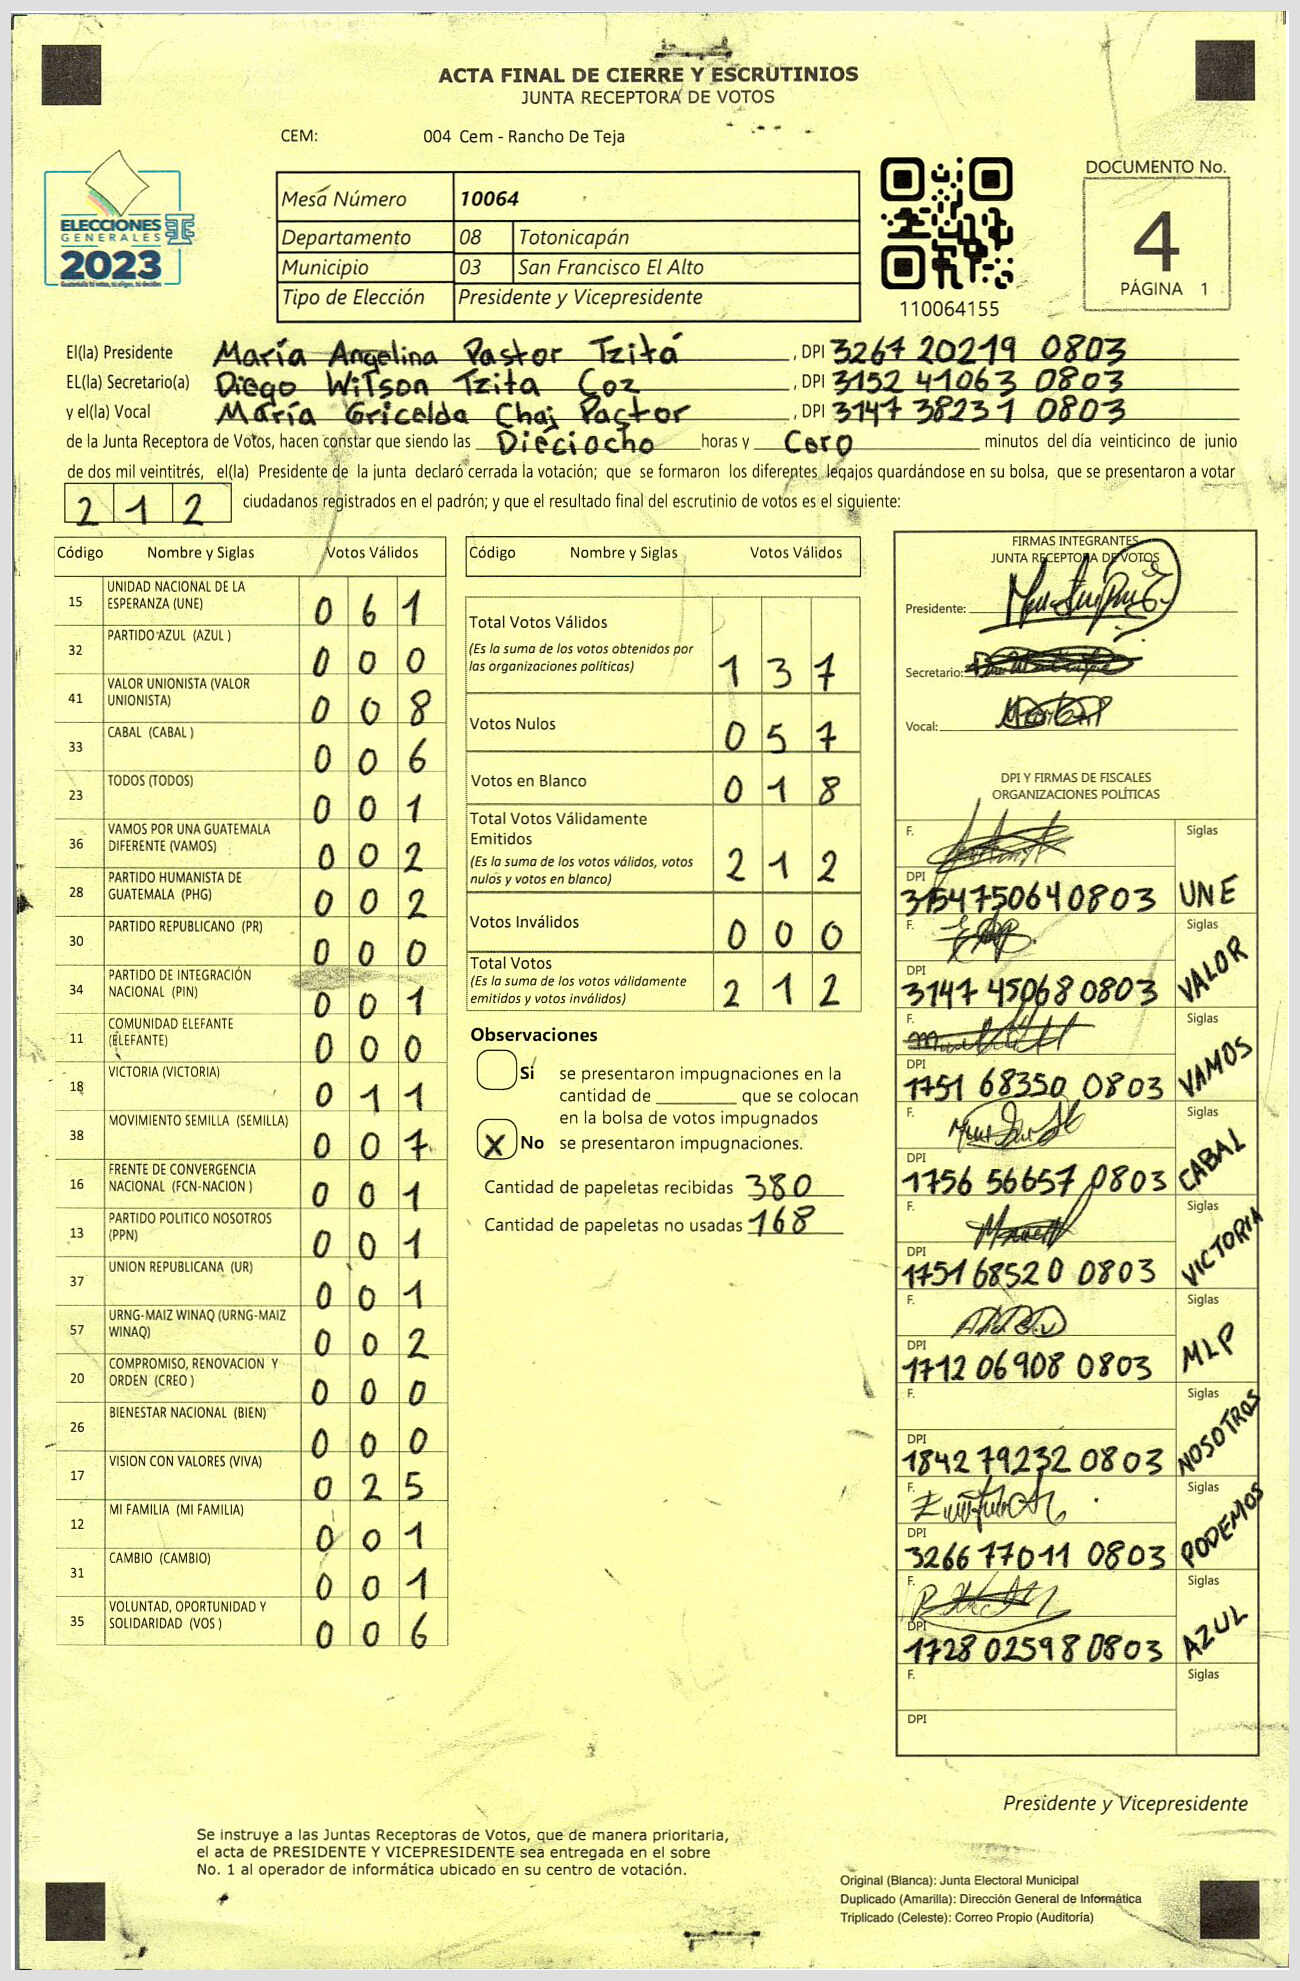 ACTA FINAL DE CIERRE Y ESCRUTINIOS
JUNTA RECEPTORA DE VOTOS
CEM: 004 Cem - Rancho De Teja
ELECCIONES
GENERALES
2023
Mesa Número 10064
Departamento 08 Totonicapán
Municipio 03 San Francisco El Alto
Tipo de Elección Presidente y Vicepresidente
110064155
DOCUMENTO No.
4
PÁGINA 1
El(la) Presidente María Angelina Pastor Tzitá , DPI 3267 20219 0803
EL(la) Secretario(a) Diego Wilson Tzita Coz , DPI 3152 41063 0803
y el(la) Vocal María Gricelda Chaj Pastor , DPI 3147 38231 0803
de la Junta Receptora de Votos, hacen constar que siendo las Dieciocho horas y Cero minutos del día veinticinco de junio
de dos mil veintitrés, el(la) Presidente de la junta declaró cerrada la votación; que se formaron los diferentes legajos guardándose en su bolsa, que se presentaron a votar
212 ciudadanos registrados en el padrón; y que el resultado final del escrutinio de votos es el siguiente:
Código Nombre y Siglas Votos Válidos
15 UNIDAD NACIONAL DE LA ESPERANZA (UNE) 061
32 PARTIDO AZUL (AZUL ) 000
41 VALOR UNIONISTA (VALOR UNIONISTA) 008
33 CABAL (CABAL ) 006
23 TODOS (TODOS) 001
36 VAMOS POR UNA GUATEMALA DIFERENTE (VAMOS) 002
28 PARTIDO HUMANISTA DE GUATEMALA (PHG) 002
30 PARTIDO REPUBLICANO (PR) 000
34 PARTIDO DE INTEGRACIÓN NACIONAL (PIN) 001
11 COMUNIDAD ELEFANTE (ELEFANTE) 000
18 VICTORIA (VICTORIA) 011
38 MOVIMIENTO SEMILLA (SEMILLA) 007
16 FRENTE DE CONVERGENCIA NACIONAL (FCN-NACION ) 001
13 PARTIDO POLITICO NOSOTROS (PPN) 001
37 UNION REPUBLICANA (UR) 001
57 URNG-MAIZ WINAQ (URNG-MAIZ WINAQ) 002
20 COMPROMISO, RENOVACION Y ORDEN (CREO ) 000
26 BIENESTAR NACIONAL (BIEN) 000
17 VISION CON VALORES (VIVA) 025
12 MI FAMILIA (MI FAMILIA) 001
31 CAMBIO (CAMBIO) 001
35 VOLUNTAD, OPORTUNIDAD Y SOLIDARIDAD (VOS ) 006
Código Nombre y Siglas Votos Válidos
Total Votos Válidos
(Es la suma de los votos obtenidos por
las organizaciones políticas) 137
Votos Nulos 057
Votos en Blanco 018
Total Votos Válidamente
Emitidos
(Es la suma de los votos válidos, votos
nulos y votos en blanco) 212
Votos Inválidos 000
Total Votos
(Es la suma de los votos válidamente
emitidos y votos inválidos) 212
Observaciones
Sí se presentaron impugnaciones en la
cantidad de ________ que se colocan
en la bolsa de votos impugnados
X No se presentaron impugnaciones.
Cantidad de papeletas recibidas 380
Cantidad de papeletas no usadas 168
FIRMAS INTEGRANTES
JUNTA RECEPTORA DE VOTOS
Presidente:
Secretario:
Vocal:
DPI Y FIRMAS DE FISCALES
ORGANIZACIONES POLÍTICAS
F. Siglas
DPI 3154750640803 UNE
F. Siglas
DPI 3147 45068 0803 VALOR
F. Siglas
DPI 1751 68350 0803 VAMOS
F. Siglas
DPI 1756 56657 0803 CABAL
F. Siglas
DPI 1751 68520 0803 VICTORIA
F. Siglas
DPI 1712 06908 0803 MLP
F. Siglas
DPI 1842 79232 0803 NOSOTROS
F. Siglas
DPI 3266 77011 0803 PODEMOS
F. Siglas
DPI 1728 02598 0803 AZUL
F. Siglas
DPI
Presidente y Vicepresidente
Se instruye a las Juntas Receptoras de Votos, que de manera prioritaria,
el acta de PRESIDENTE Y VICEPRESIDENTE sea entregada en el sobre
No. 1 al operador de informática ubicado en su centro de votación.
Original (Blanca): Junta Electoral Municipal
Duplicado (Amarilla): Dirección General de Informática
Triplicado (Celeste): Correo Propio (Auditoría)